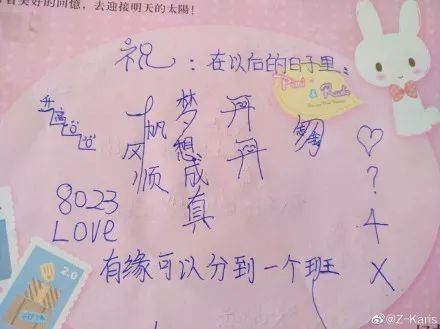 美好的回憶，去迎接明天的太陽!
祝：在以后的日子里
一帆风顺
梦想成真
丹丹
♡
?
4
X
8023
LOVE
有缘可以分到一个班
2.0
@Z-Karis